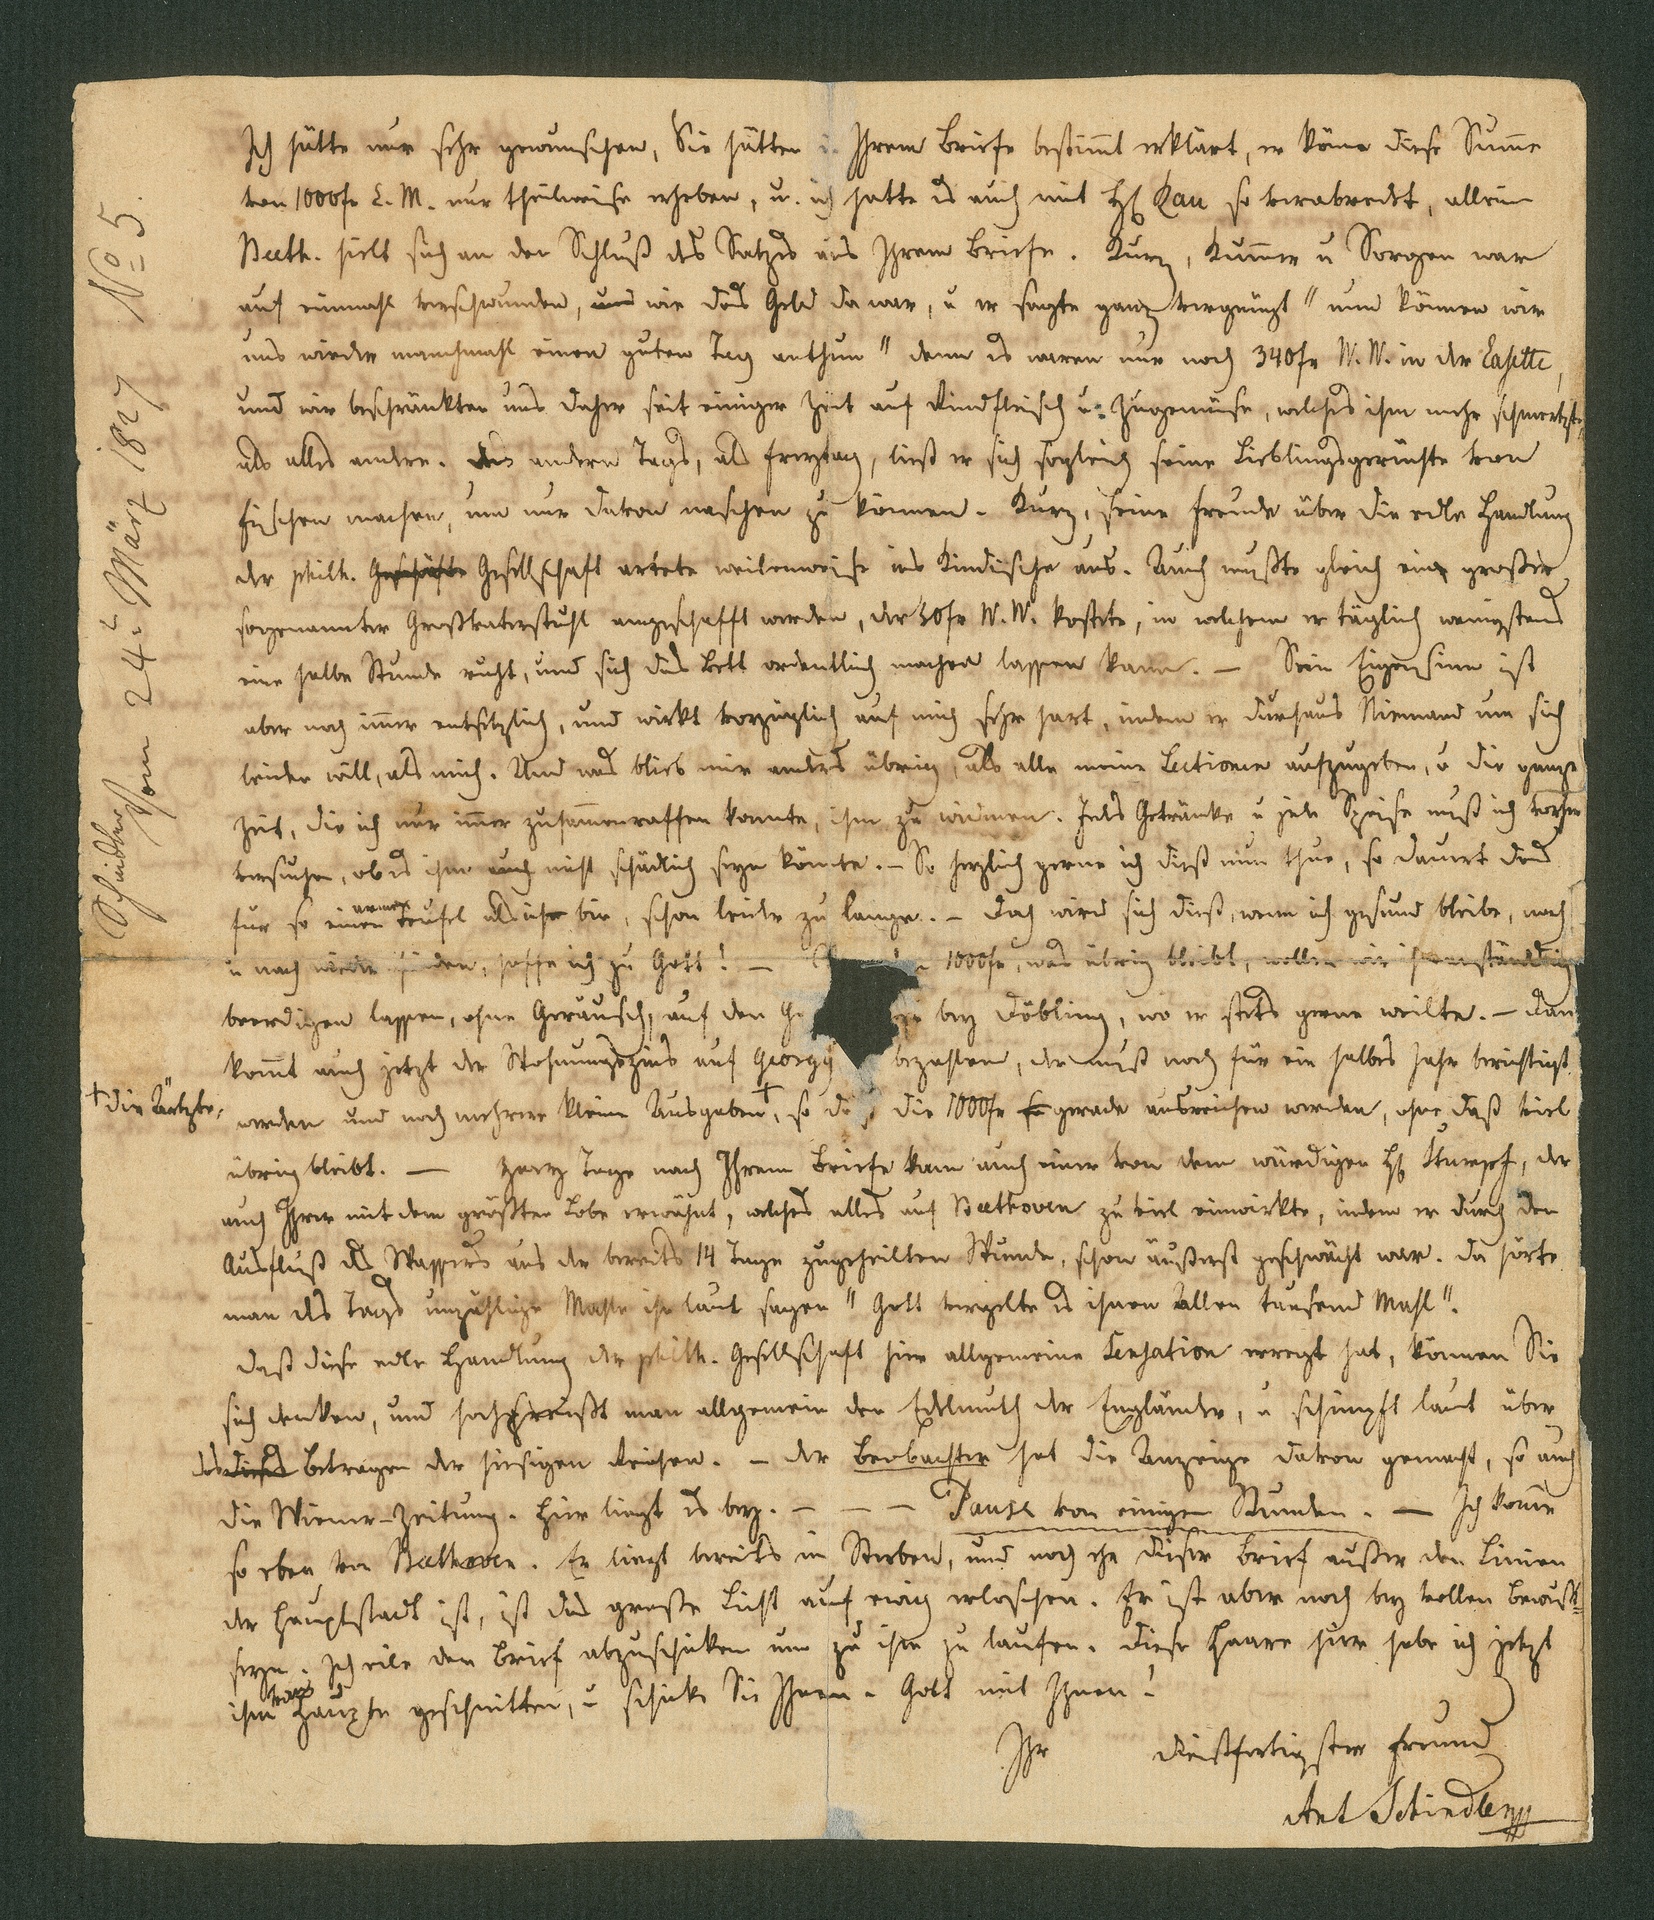 Ich hätte nur sehr gewunschen, Sie hätten in Ihrem Briefe bestimmt erklärt, er könne diese Summe
von 1000 fr C. M. nur theilweise erheben, u. ich hatte es auch mit H Rau so verabredet, allein
Beeth. hielt sich an den Schluß des Satzes aus Ihrem Briefe. Kurz, Kummer u Sorgen war
auf einmahl verschwunden, wie das Geld da war, u er sagte ganz vergnügt " nun können wir
uns wieder manchmahl einen guten Tag anthun " denn es waren nur noch 340 fr W. W. in der Casette,
und wir beschränkten uns daher seit einiger Zeit auf Rindfleisch u. Zugemüse, welches ihn mehr schmerzte
als alles andere. Des andern Tags, als Freytag, ließ er sich sogleich seine Lieblingsgerichte von
Fischen machen, um nur davon naschen zu können. Kurz, seine Freude über die edle Handlung
der philh. Gesellschaft artete weilenweise ins Kindische aus. Auch mußte gleich ein großer
sogenannter Großvaterstuhl angeschafft werden, der 50 fr W. W. kostete, in welchem er täglich wenigstens
eine halbe Stunde ruht, und sich das Bett ordentlich machen lassen kann. — Sein Eigensinn ist
aber noch immer entsetzlich, und wirkt vorzüglich auf mich sehr hart, indem er durchaus Niemand um sich
leiden will, als mich. Und was blieb mir anders übrig, als alle meine Lectionen aufzugeben, u die ganze
Zeit, die ich nur immer zusammenraffen konnte, ihm zu widmen. Jedes Getränke u jede Speise muß ich vorher
versuchen, ob es ihm nicht schädlich seyn könnte. – So herzlich gerne ich dieß nun thue, so dauert das
für so einen armen Teufel als ich bin, schon leider zu lange. – Doch wird sich dieß, wenn ich gesund bleibe, nach
u nach wieder finden, hoffe ich zu Gott! — 1000 fr, was übrig bleibt, wollen wir ihn anständig
beerdigen lassen, ohne Geräusch, auf den bey Döbling, wo er stets gerne weilte. – Dan
kommt auch jetzt der Wohnungszins auf Georgy bezahlen, der muß noch für ein halbes Jahr berichtigt
† die Aertzte,
werden und noch mehrere kleine Ausgaben †, so die 1000 fr gerade ausreichen werden, ohne daß viel
übrig bleibt. — Zwey Tage nach Ihrem Briefe kam auch einer von dem würdigen H Stumpf, der
auch Ihrer mit dem größten Lobe erwähnt, welches alles auf Beethoven zu viel einwirkte, indem er durch den
Ausfluß des Wassers aus der bereits 14 Tage zugeheilten Wunde, schon äußerst geschwächt war. Da hörte
man des Tags unzählige Mahle ihn laut sagen " Gott vergelte es ihnen Allen tausend Mahl".
Daß diese edle Handlung der philh. Gesellschaft hier allgemeine Sensation erregt hat, können Sie
sich denken, und hochpreißt man allgemein den Edelmuth der Engländer, u schimpft laut über
das Betragen der hiesigen Reichen. – Der Beobachter hat die Anzeige davon gemacht, so auch
die Wiener-Zeitung. Hier liegt es bey. – — — Pause von einigen Stunden. — Ich komme
so eben von Beethoven. Er liegt bereits im Sterben, und noch ehe dieser Brief außer den Linien
der Hauptstadt ist, ist das große Licht auf ewig erloschen. Er ist aber noch bey vollen Bewußt=
seyn. Ich eile den Brief abzuschicken um zu ihm zu laufen. Diese Haare hier habe ich jetzt
ihm vom Haupte geschnitten, u schicke Sie Ihnen. Gott mit Ihnen!
Ihr dienstfertigster Freund
Ant Schindler
Schindler
Vom 24t März 1827 No 5.